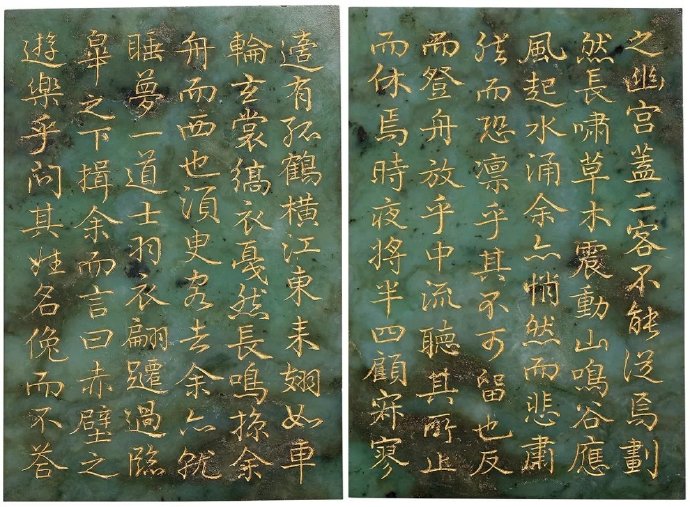 之幽宮蓋二客不能從焉劃
然長嘯草木震動山鳴谷應
風起水涌余亦悄然而悲肅
然而恐凛乎其不可留也反
而登舟放乎中流聽其所止
而休焉時夜將半四顧寂寥
適有孤鶴橫江東来翅如車
輪玄裳縞衣戛然長鳴掠余
舟而西也須臾客去余亦就
睡夢一道士羽衣翩躚過臨
皐之下揖余而言曰赤壁之
遊樂乎問其姓名俛而不荅